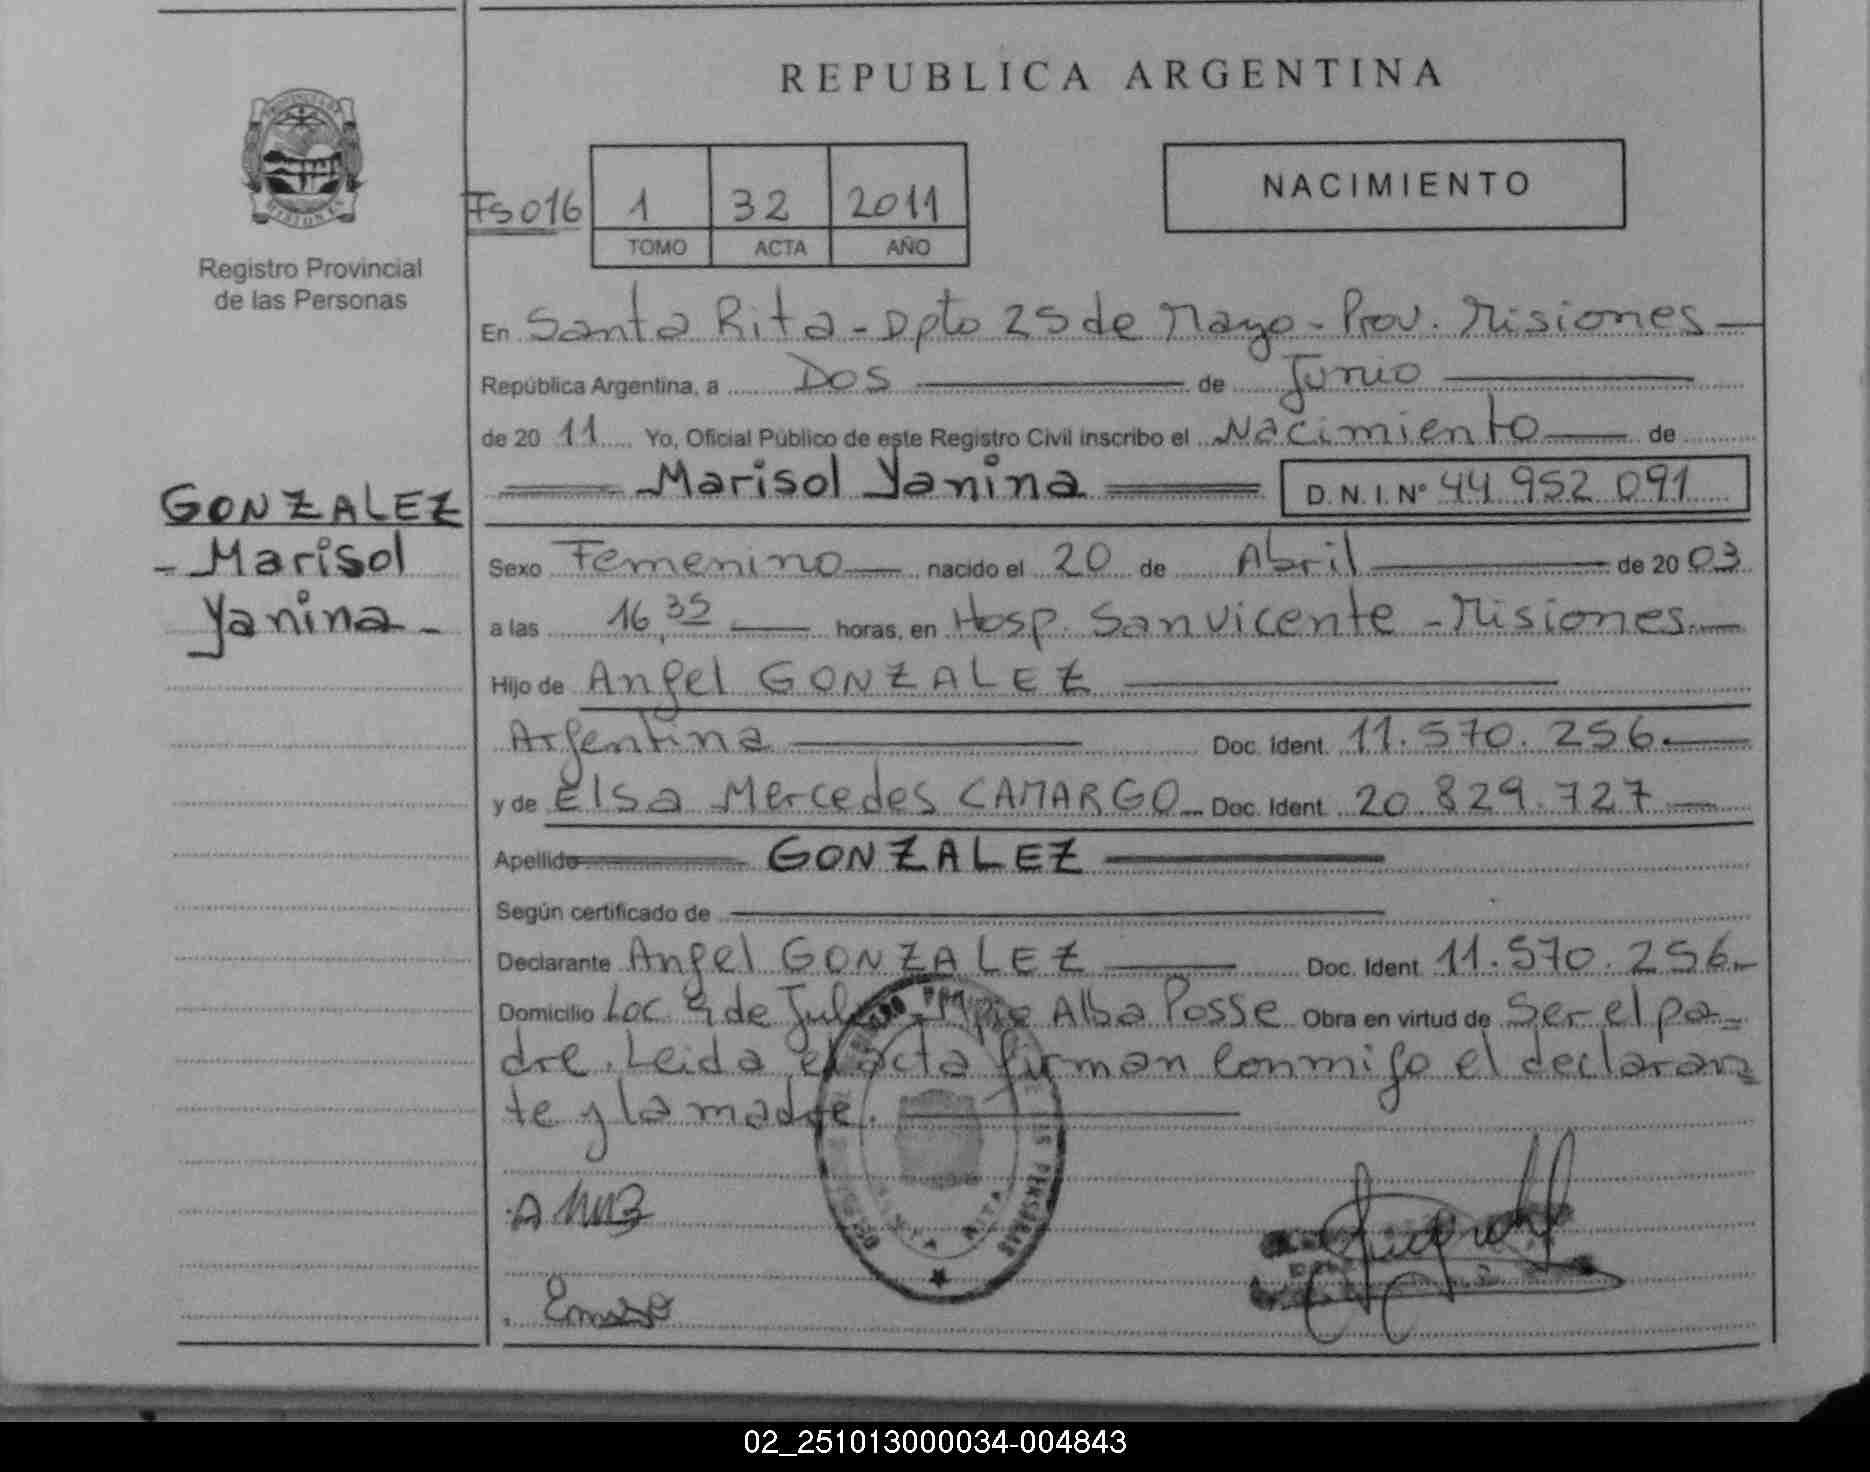 REPUBLICA ARGENTINA
PROVINCIA DE
MISIONES
Registro Provincial
de las Personas
Fs 016
1 32 2011
TOMO ACTA AÑO
NACIMIENTO
En Santa Rita - Dpto 25 de Mayo - Prov. Misiones
República Argentina, a Dos de Junio
de 20 11 Yo, Oficial Público de este Registro Civil inscribo el Nacimiento de
Marisol Yanina D.N.I. Nº 44 952 091
GONZALEZ
- Marisol
Yanina -
Sexo Femenino nacido el 20 de Abril de 20 03
a las 16,35 horas, en Hosp. San Vicente - Misiones
Hijo de Angel GONZALEZ
Argentina Doc. Ident. 11.570.256.
y de Elsa Mercedes CAMARGO Doc. Ident. 20.829.727
Apellido GONZALEZ
Según certificado de
Declarante Angel GONZALEZ Doc. Ident 11.570.256.
Domicilio Loc. 9 de Julio - Mpio Alba Posse Obra en virtud de Ser el pa=
dre. Leida el acta firman conmigo el declaran=
te y la madre.
PERSONAS
02_251013000034-004843